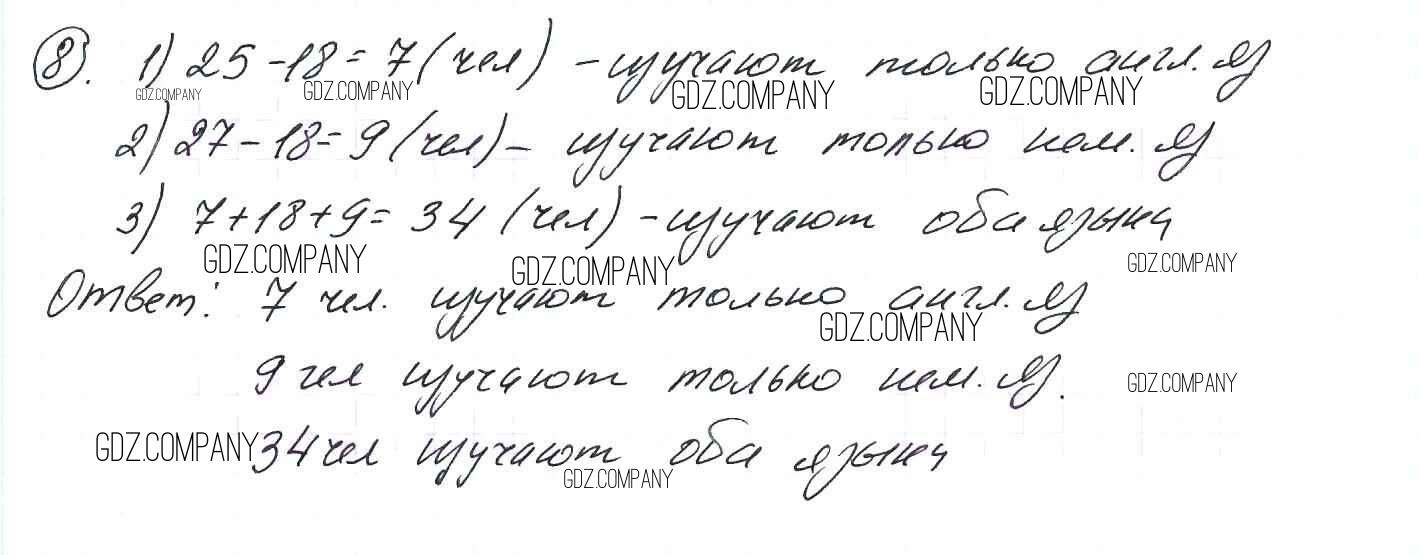 8. 1) 25 - 18 = 7 (чел) - изучают только англ. яз
GDZ.COMPANY GDZ.COMPANY GDZ.COMPANY GDZ.COMPANY
2) 27 - 18 = 9 (чел) - изучают только нем. яз
3) 7 + 18 + 9 = 34 (чел) - изучают оба языка
GDZ.COMPANY GDZ.COMPANY GDZ.COMPANY
Ответ: 7 чел. изучают только англ. яз
GDZ.COMPANY
9 чел изучают только нем. яз. GDZ.COMPANY
GDZ.COMPANY 34 чел изучают оба языка
GDZ.COMPANY